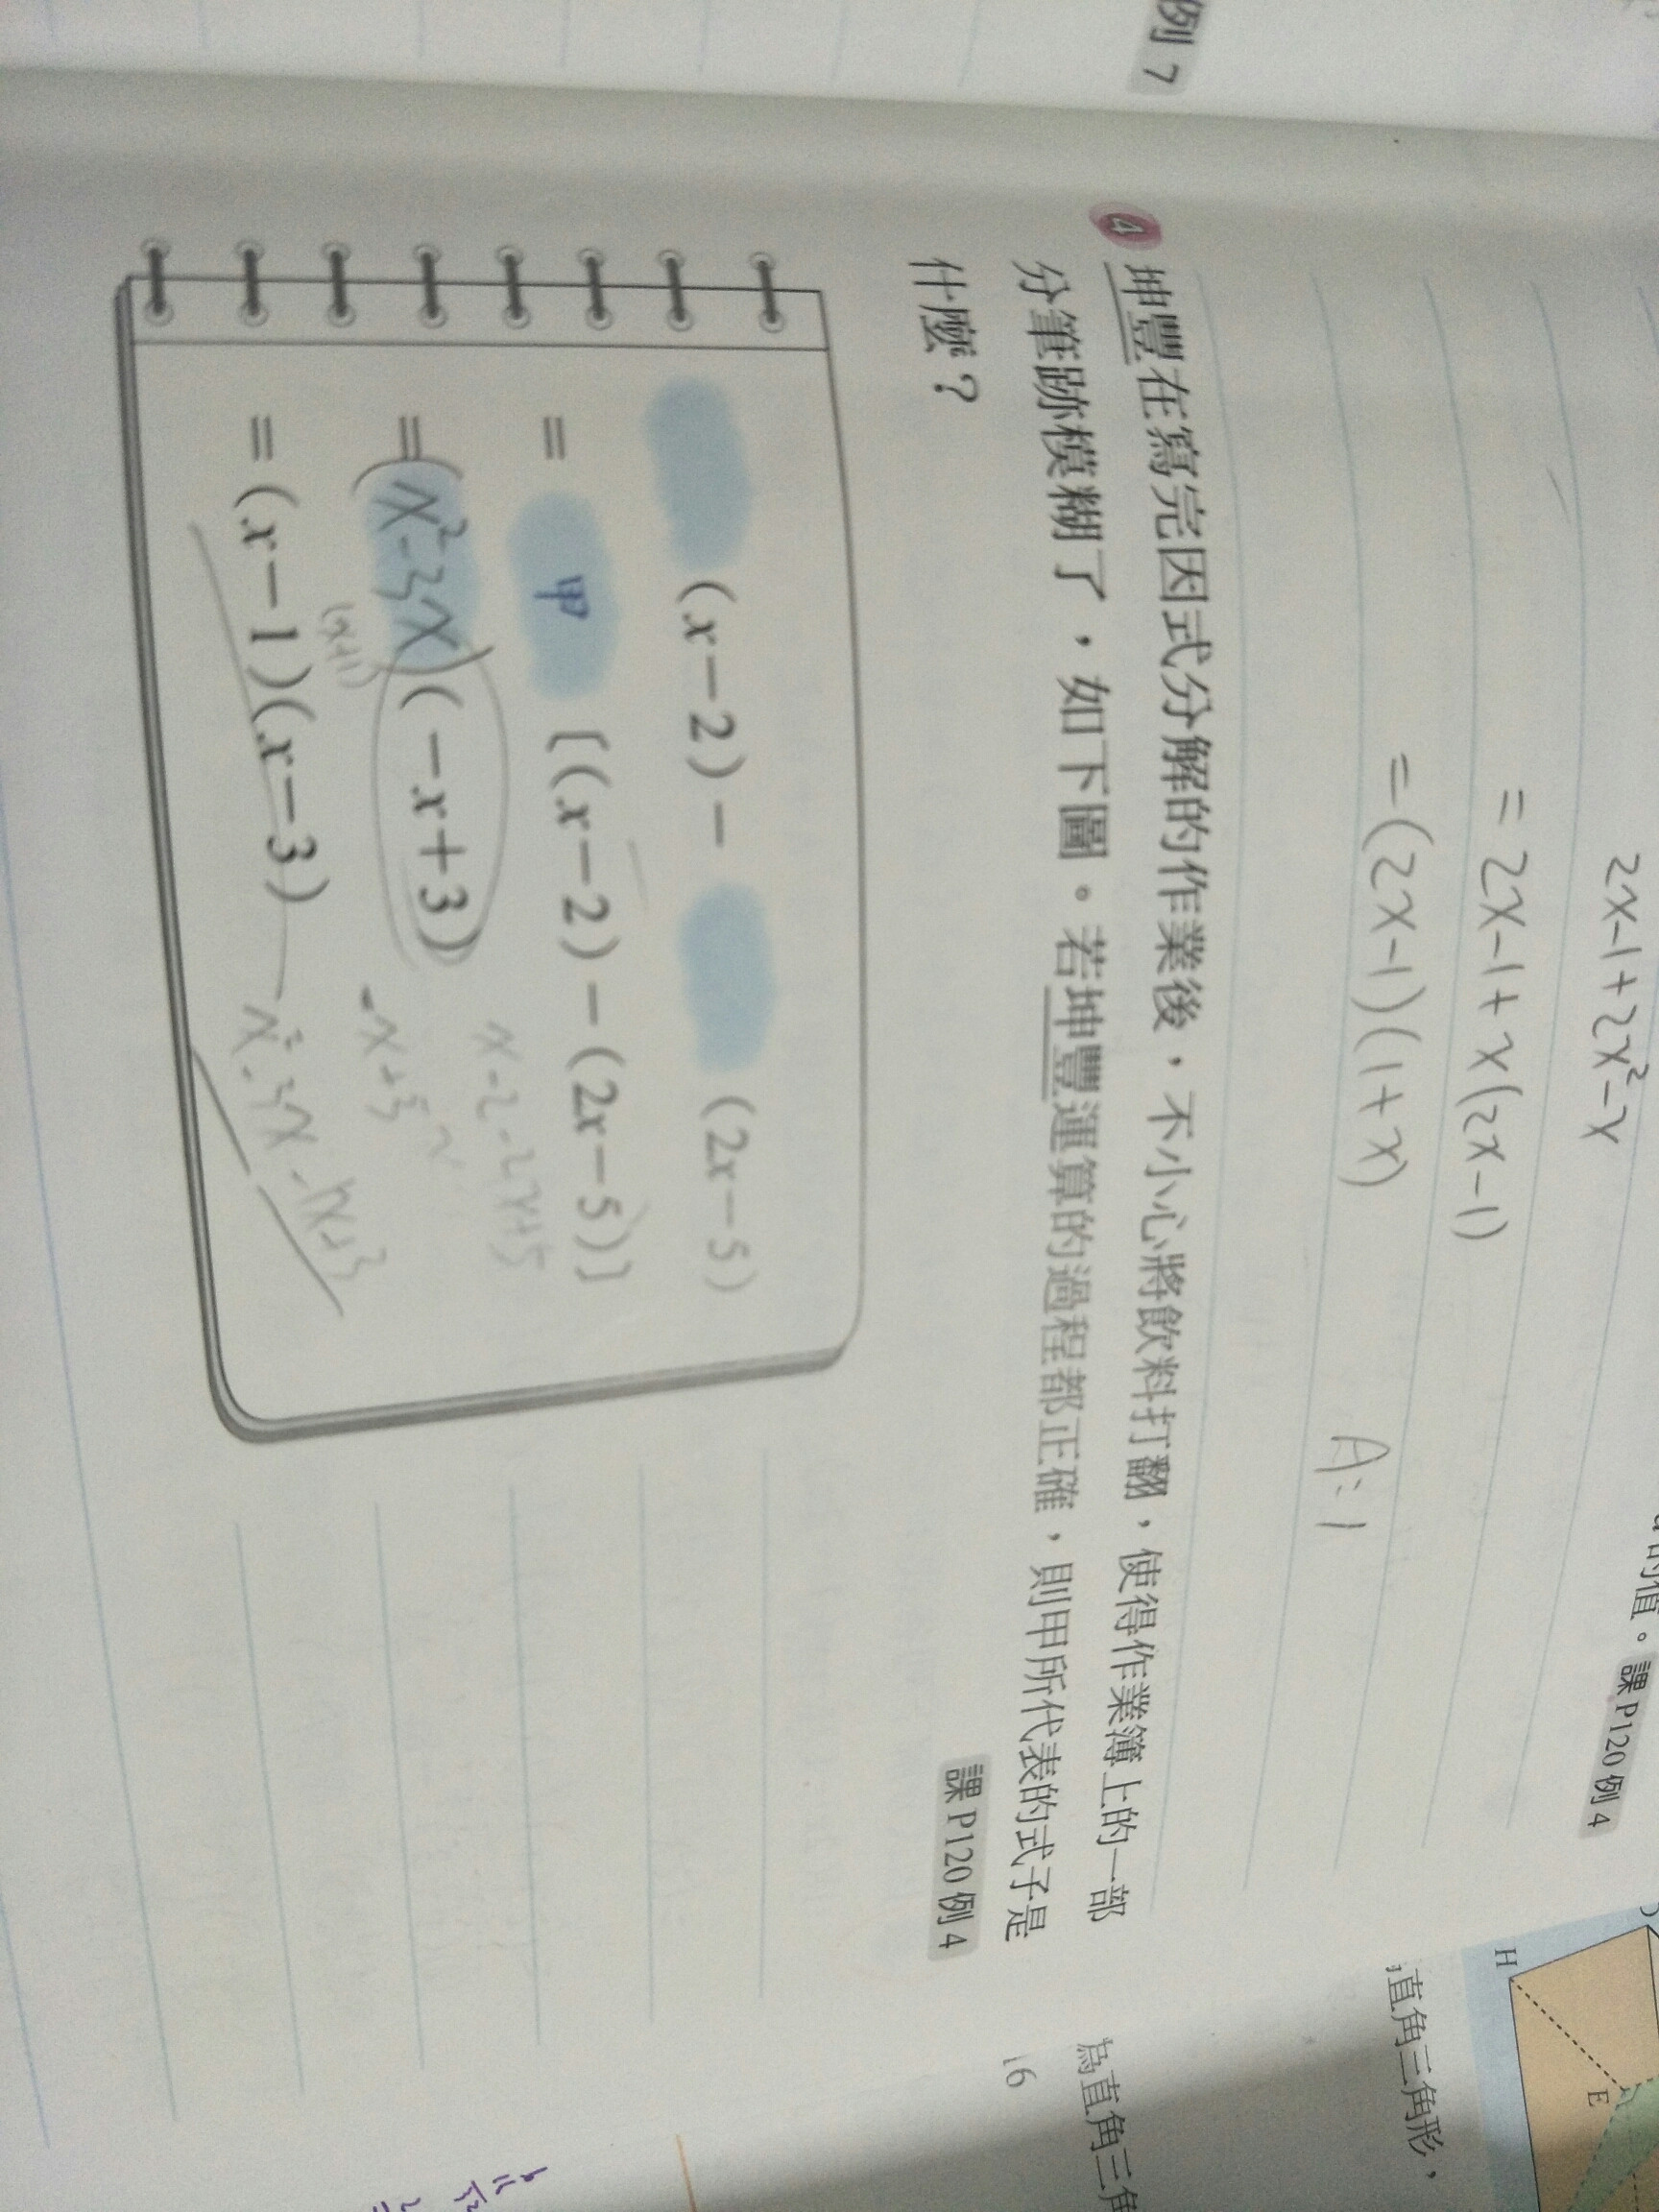 例 7
2x-1+2x²-x
=2x-1+x(2x-1)
=(2x-1)(1+x)
A:1
的值。課P120例4
4 坤豐在寫完因式分解的作業後,不小心將飲料打翻,使得作業簿上的一部
分筆跡模糊了,如下圖。若坤豐運算的過程都正確,則甲所代表的式子是
什麼?
課P120例4
(x-2)- (2x-5)
= 甲 [(x-2)-(2x-5)]
x-2-2x+5
=(x²-3x)(-x+3)
(x+1)
=(x-1)(x-3)
H
E
直角三角形,
為直角三角
16